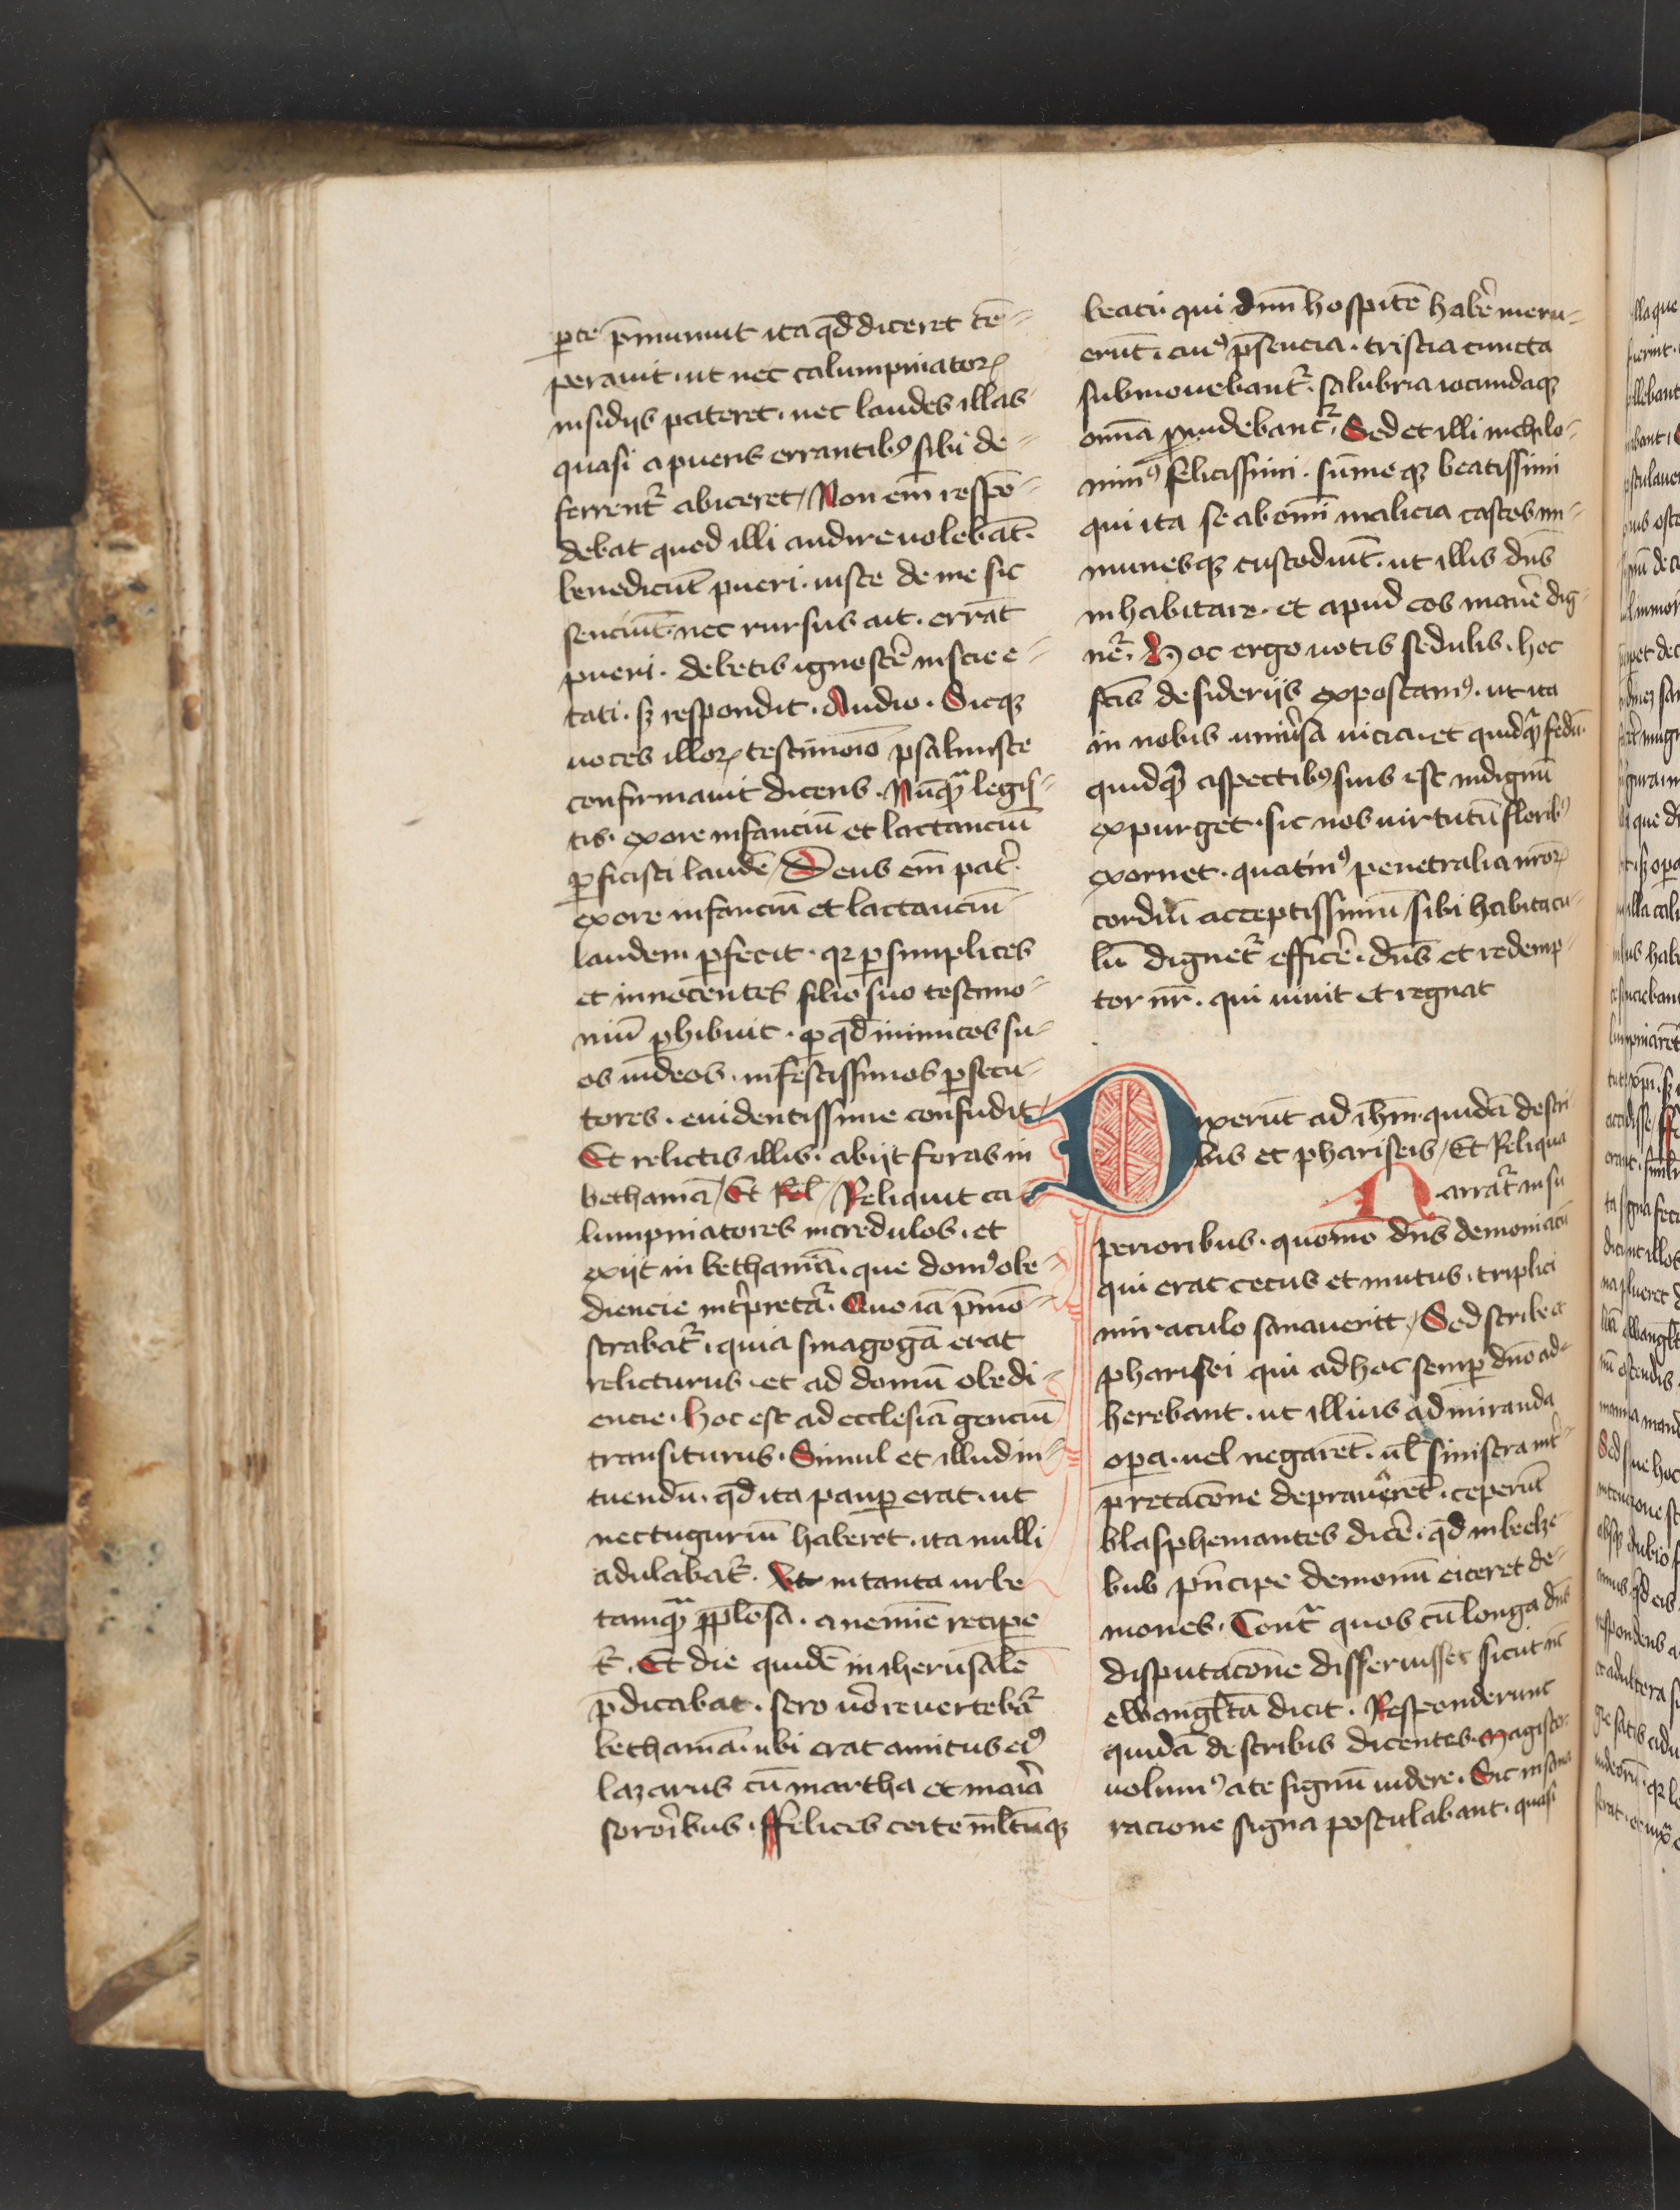 ꝑte p̄muniuit ita qd̄ diceret tē⸗
perauit · ut nec calumpniatoꝝ
insidijs pateret · nec laudes illas
quasi a pueris errantibꝰ sibi de⸗
ferrent᷑ abiceret / Non em̄ respō⸗
debat quod illi audire volebāt ·
benedicūt pueri · iuste de me sic
senciūt · nec rursus ait · errāt
pueri · debetis ignoscē᷑ inscie e⸗
tati · sꝫ respondit · Audio · Sicqꝫ
voces illoꝝ testimōio psalmiste
confirmauit dicens · Nūqᷓ legis⸗
tis · ex ore infanciū et lactanciū
ꝑfecisti laudē / Deus em̄ pat᷑ ·
ex ore infanciū et lactanciū
laudem ꝑfecit · qꝛ ꝑ simplices
et innocentes filio suo testimo⸗
niū ꝑhibuit · ꝑ qd̄ inimicos su⸗
os iudeos · infestissimos ꝑsecu⸗
tores · euidentissime confudit /
Et relictis illis · abijt foras in
bethaniā / Et Rel̄ / Reliquit ca⸗
lumpniatores incredulos · et
exijt in bethaniā · que domꝰ obe⸗
diencie int᷑pretat᷑ · Quo iā p̄mō⸗
strabat᷑ · quia sinagogā erat
relicturus · et ad domū obedi⸗
encie · hoc est ad ecclesiā genciū
transiturus · Simul et illud in⸗
tuendū · qd̄ ita pauꝑ erat · ut
nec tuguriū haberet · ita nulli
adulabat᷑ · Ut in tanta urbe
tamqᷓ pplosa · a nemine recipe
t᷑ · Et die quidē in iherusalē
p̄dicabat · sero vo᷑ revertebat᷑
bethaniā · ubi erat amicus eiꝰ
lazarus cū martha et maria
sororibus · Ffelices certe ml̄tūqꝫ
beati · qui dnm̄ hospitē habe᷑ meru⸗
erūt · cuiꝰ p̄sencia · tristia cuncta
submouebant᷑ · salubria iocundaqꝫ
omia ꝓuidebant᷑ · Sed et illi nichilo⸗
minꝰ felicissimi · sūmeqꝫ beatissimi
qui ita se ab omi malicia castos im⸗
munesqꝫ custodiūt · ut illis dn̄s
inhabitare · et apud eos mane᷑ dig⸗
net᷑ · Hoc ergo votis sedulis · hoc
sctīs desiderijs exposcamꝰ · ut ita
in nobis uniu᷑sa vicia · et quidqᷓ fedū ·
quidqᷓ aspectibꝰ suis est indignū
expurget · sic nos virtutū floribꝰ
exornet · quatinꝰ penetralia nroꝝ
cordiū acceptissimū sibi habitacu⸗
lū dignet᷑ effice᷑ · dn̄s et redemp⸗
tor nr̄ · qui viuit et regnat
Dixerūt ad ihm̄ · quidā de scri⸗
bis et phariseis / Et Reliqua
Narrat᷑ in su
perioribus · quomo dn̄s demoniacū
qui erat cecus et mutus · triplici
miraculo sanaueritt / Sed scribe et
pharisei qui ad hoc semꝑ dn̄o ad⸗
herebant · ut illius admiranda
opera · vel negarēt · ul̄ sinistra int᷑⸗
pretacōne deprauarēt · ceperūt
blasphemantes dice᷑ · qd̄ in beelze⸗
bub p̄ncipe demoniū eiceret de⸗
mones · Cont᷑ quos cū longa dn̄s
disputacōne disseruisset sicut nc̄
ewangl̄ta dicit · Responderunt
quidā de scribis dicentes · Magister
volumꝰ a te signū videre · Sic insana
racione signa postulabant · quasi